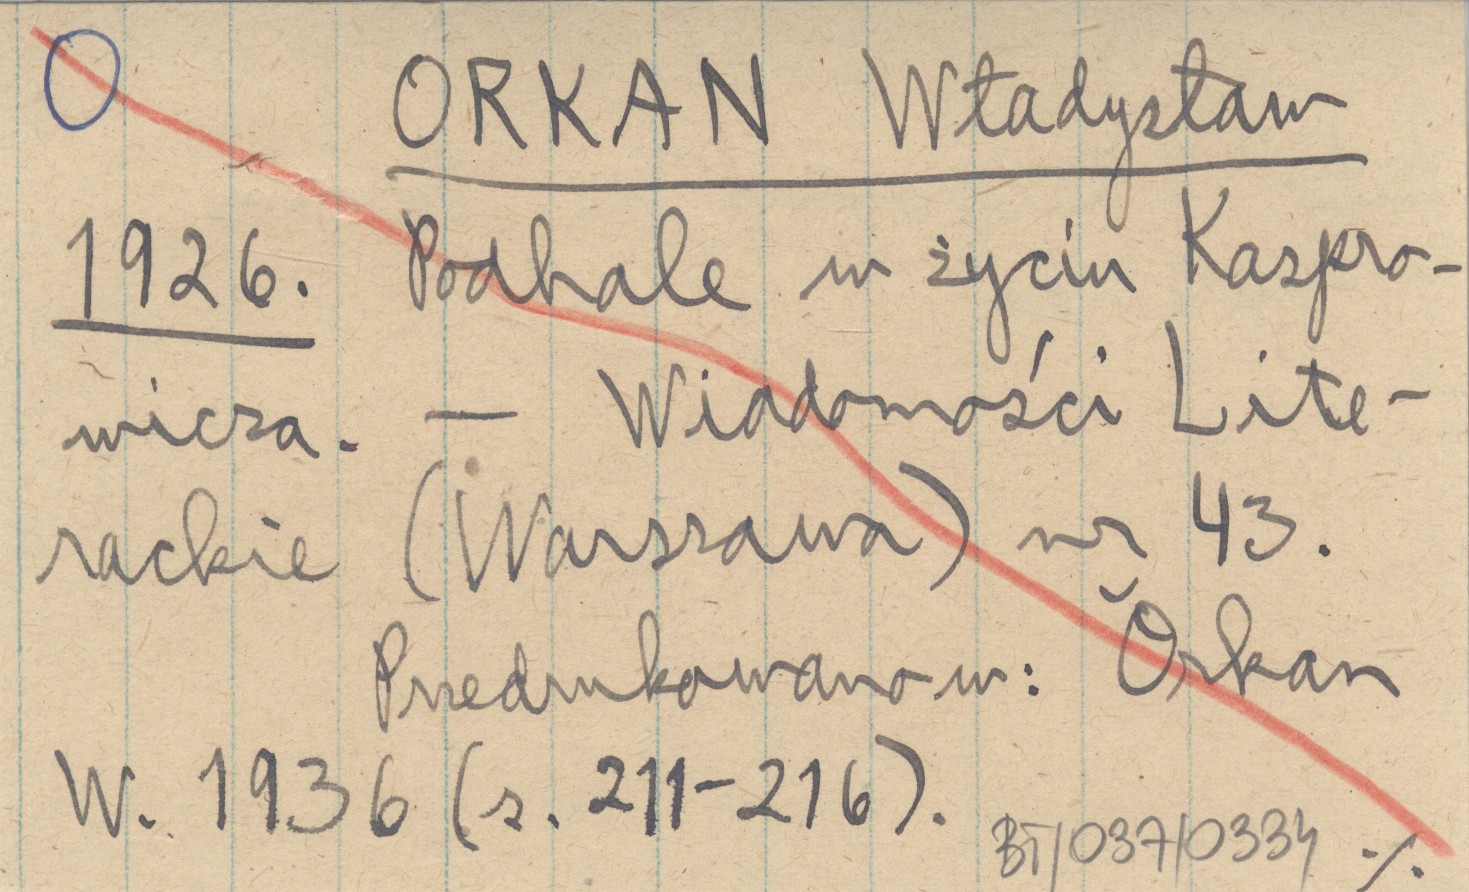 O ORKAN Władysław
1926. Podhale w życiu Kaspro-
wicza. — Wiadomości Lite-
rackie (Warszawa) nr 43.
Przedrukowano w: Orkan
W. 1936 (s. 211-216).
BT/037/0334 ./.